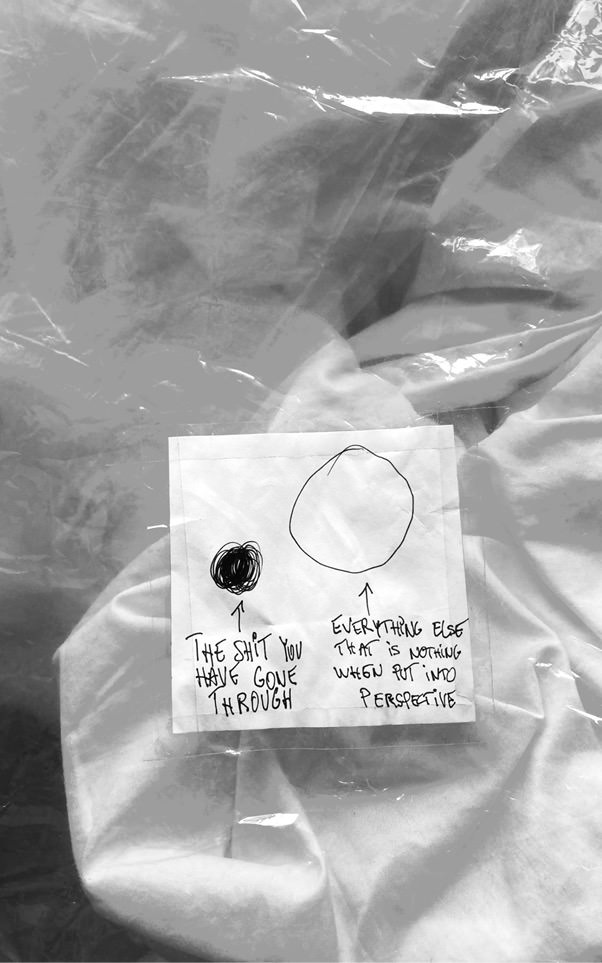 THE SHIT YOU
HAVE GONE
THROUGH
EVERYTHING ELSE
THAT IS NOTHING
WHEN PUT INTO
PERSPECTIVE